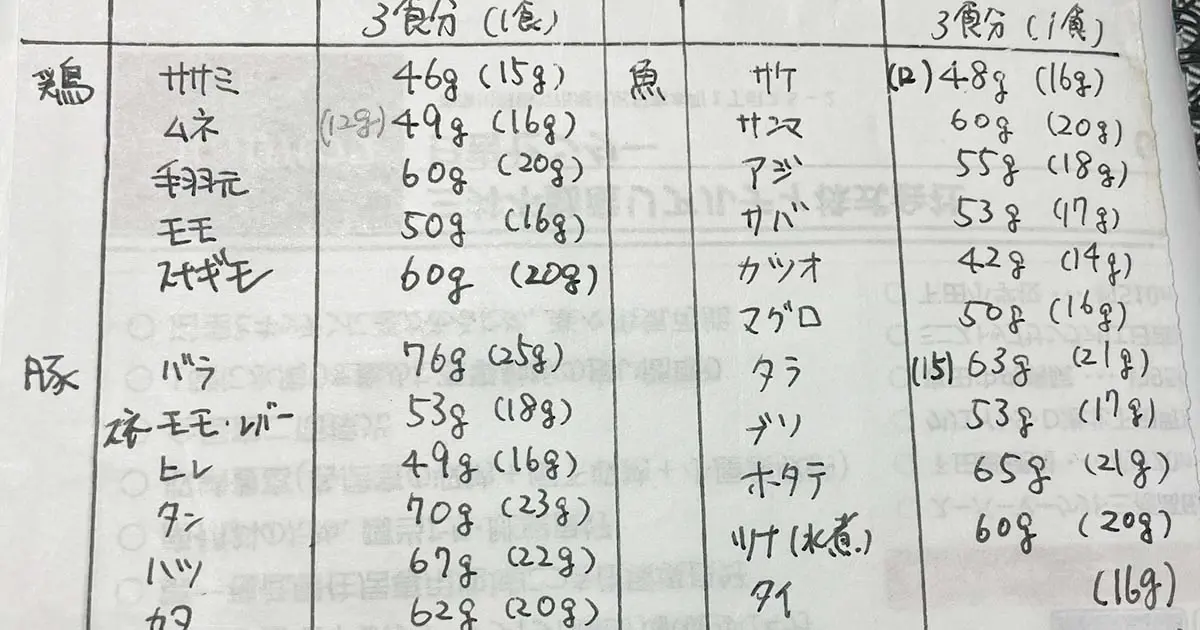 3食分(1食) 3食分(1食)
鶏 ササミ 46g (15g) 魚 サケ (12) 48g (16g)
ムネ (12g) 49g (16g) サンマ 60g (20g)
手羽元 60g (20g) アジ 55g (18g)
モモ 50g (16g) サバ 53g (17g)
スナギモ 60g (20g) カツオ 42g (14g)
マグロ 50g (16g)
豚 バラ 76g (25g) タラ (15) 63g (21g)
スネ モモ・レバー 53g (18g) ブリ 53g (17g)
ヒレ 49g (16g) ホタテ 65g (21g)
タン 70g (23g) ツナ(水煮) 60g (20g)
ハツ 67g (22g) タイ (16g)
カタ 62g (20g)